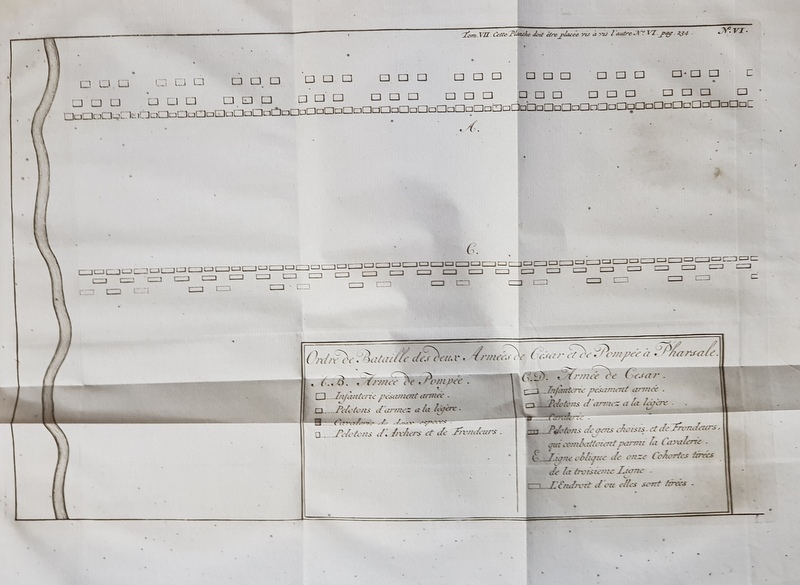 Tom VII Cette Planche doit être placée vis à vis l'autre N.º VI pag. 234
N.º VI.
A.
C.
Ordre de Bataille des deux Armées de César et de Pompée à Pharsale.
A.B. Armée de Pompée.
Infanterie pesament armée.
Pelotons d'armez a la légère.
Cavalerie de deux especes
Pelotons d'Archers et de Frondeurs.
C.D. Armée de Cesar.
Infanterie pesament armée.
Pelotons d'armez a la légère.
Cavalerie
Pelotons de gens choisis. et de Frondeurs.
qui combattoient parmi la Cavalerie.
E Ligne oblique de onze Cohortes tirées
de la troisieme Ligne.
L'Endroit d'ou elles sont tirées.